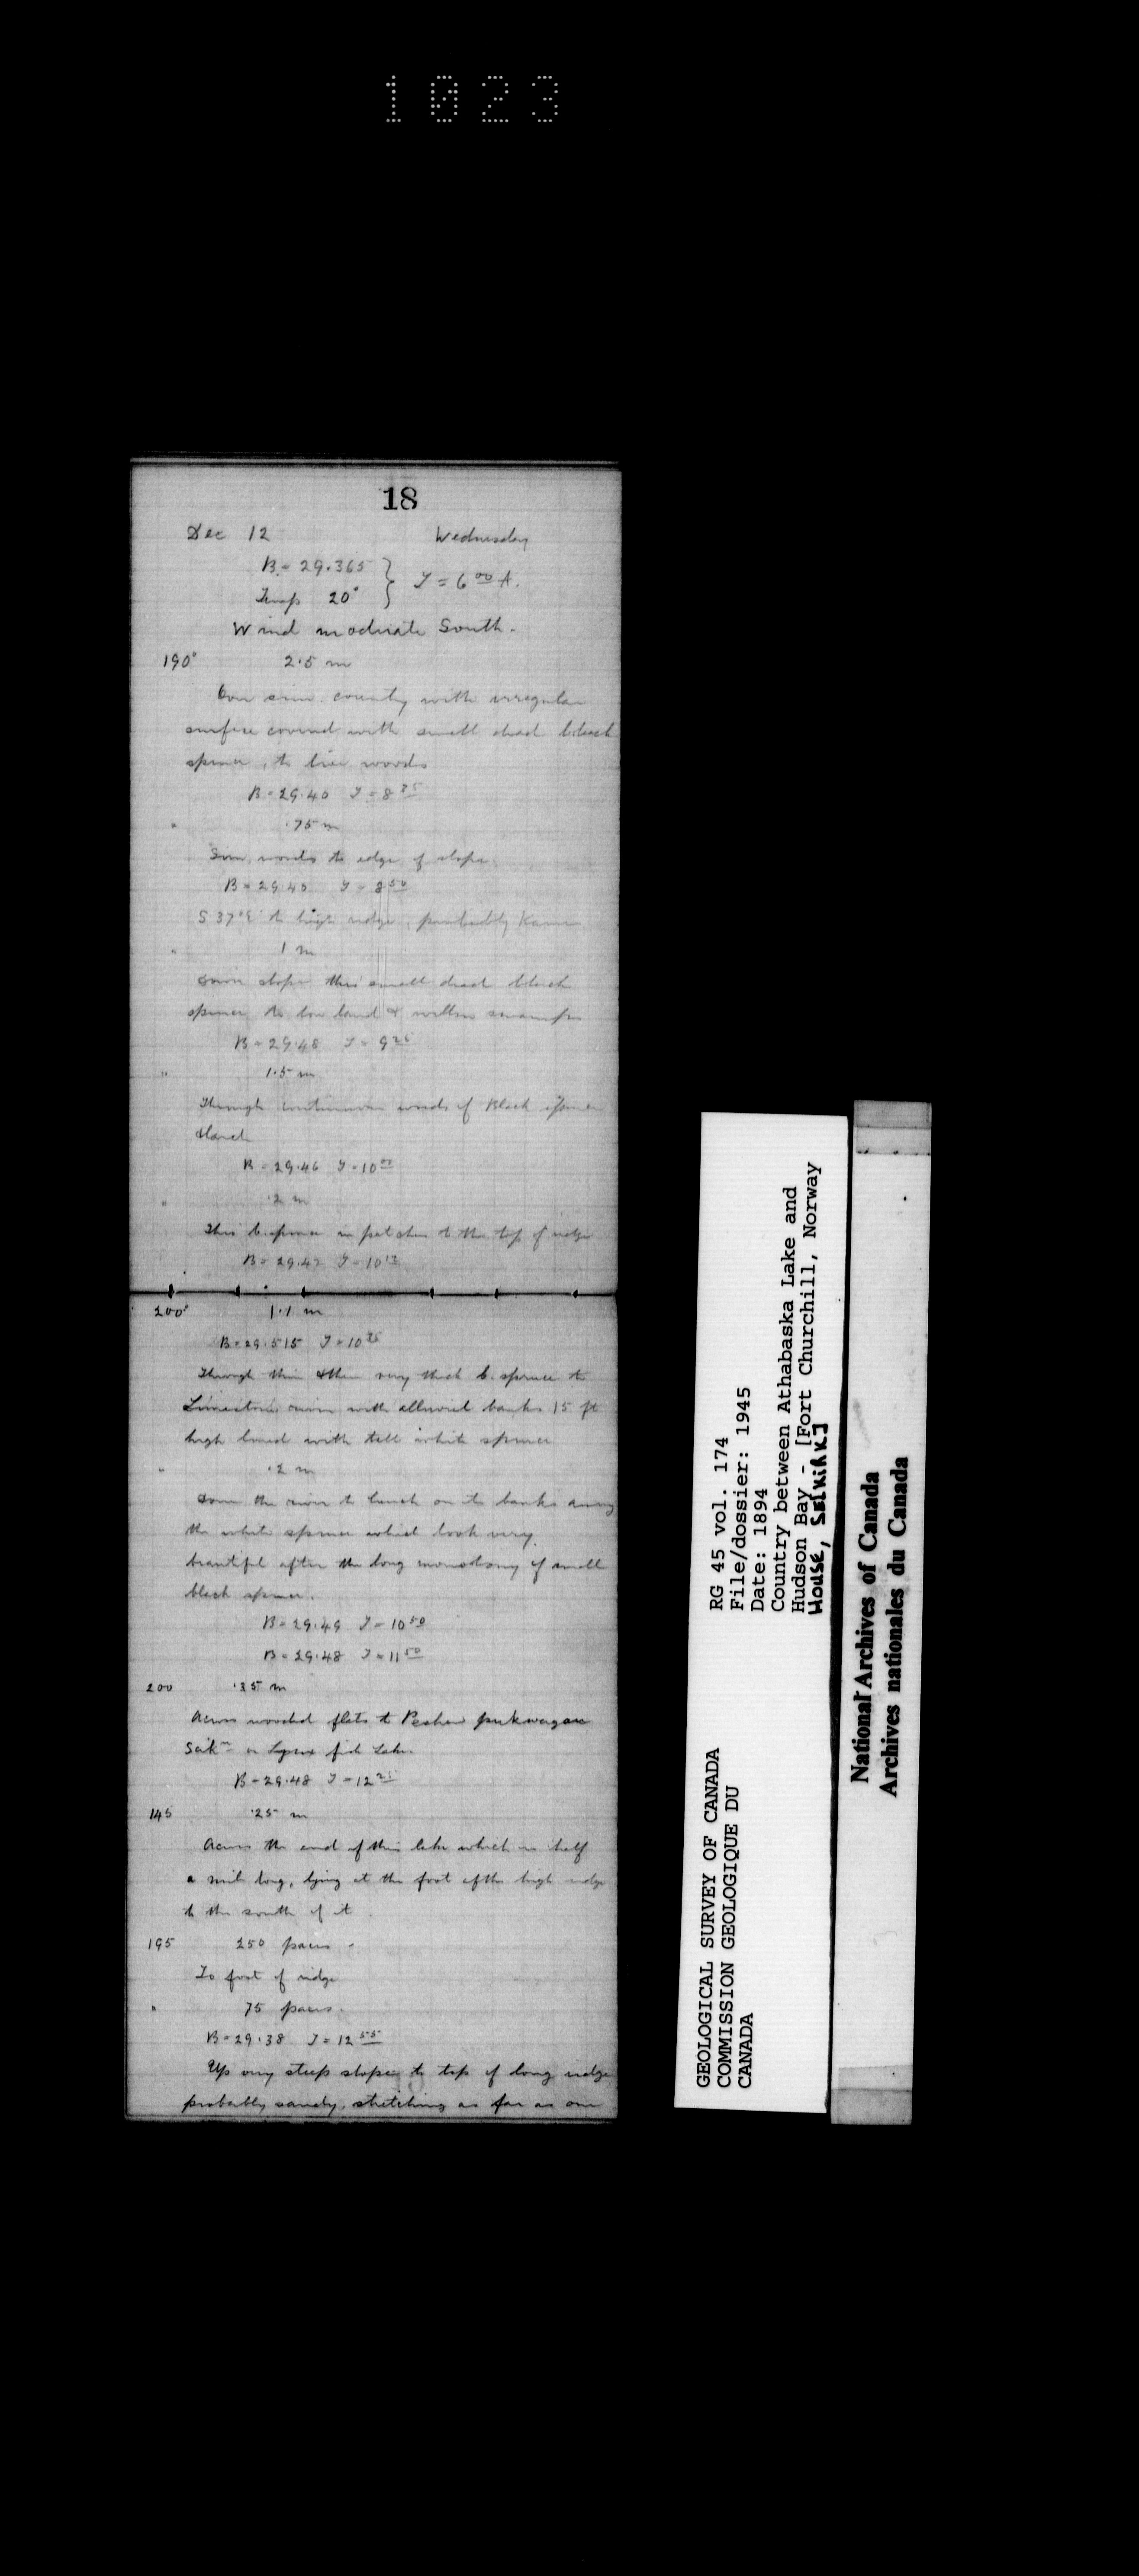 1023
18
Dec 12 Wednesday
B = 29.365 } T = 6 00 A.
Temp 20°
Wind moderate South.
190° 2.5 m
Over sim. country with irregular
surface covered with small dead black
spruce, to live woods
B = 29.40 T = 8 35
" .75 m
Sim. woods to edge of slope.
B = 29.40 T = 8 50
S 37° E to high ridge, probably Kame
" 1 m
Down slope thro' small dead black
spruce to low land & willow swamps
B = 29.48 T = 9 25
" 1.5 m
Through continuous woods of Black spruce
& larch
B = 29.46 T = 10 00
" .2 m
Thro b. spruce in patches to the top of ridge
B = 29.47 T = 10
200° 1.1 m
B = 29.515 T = 10 35
Through thin & then very thick b. spruce to
Limestone river with alluvial banks 15 ft
high lined with tall white spruce
" .2 m
Down the river to lunch on the banks among
the white spruce which look very
beautiful after the long monotony of small
black spruce.
B = 29.49 T = 10 50
B = 29.48 T = 11 50
200 .35 m
Across wooded flats to Peshew pukwagan
Sak or Lynx fish Lake.
B = 29.48 T = 12 25
145 .25 m
Across the end of this lake which is half
a mile long, lying at the foot of the high ridge
to the south of it
195 250 paces -
To foot of ridge
" 75 paces.
B = 29.38 T = 12 55
Up very steep slope to top of long ridge
probably sandy, stretching as far as one
RG 45 vol. 174
File/dossier: 1945
Date: 1894
Country between Athabaska Lake and
Hudson Bay - [Fort Churchill, Norway
House, Selkirk]
GEOLOGICAL SURVEY OF CANADA
COMMISSION GEOLOGIQUE DU
CANADA
National Archives of Canada
Archives nationales du Canada